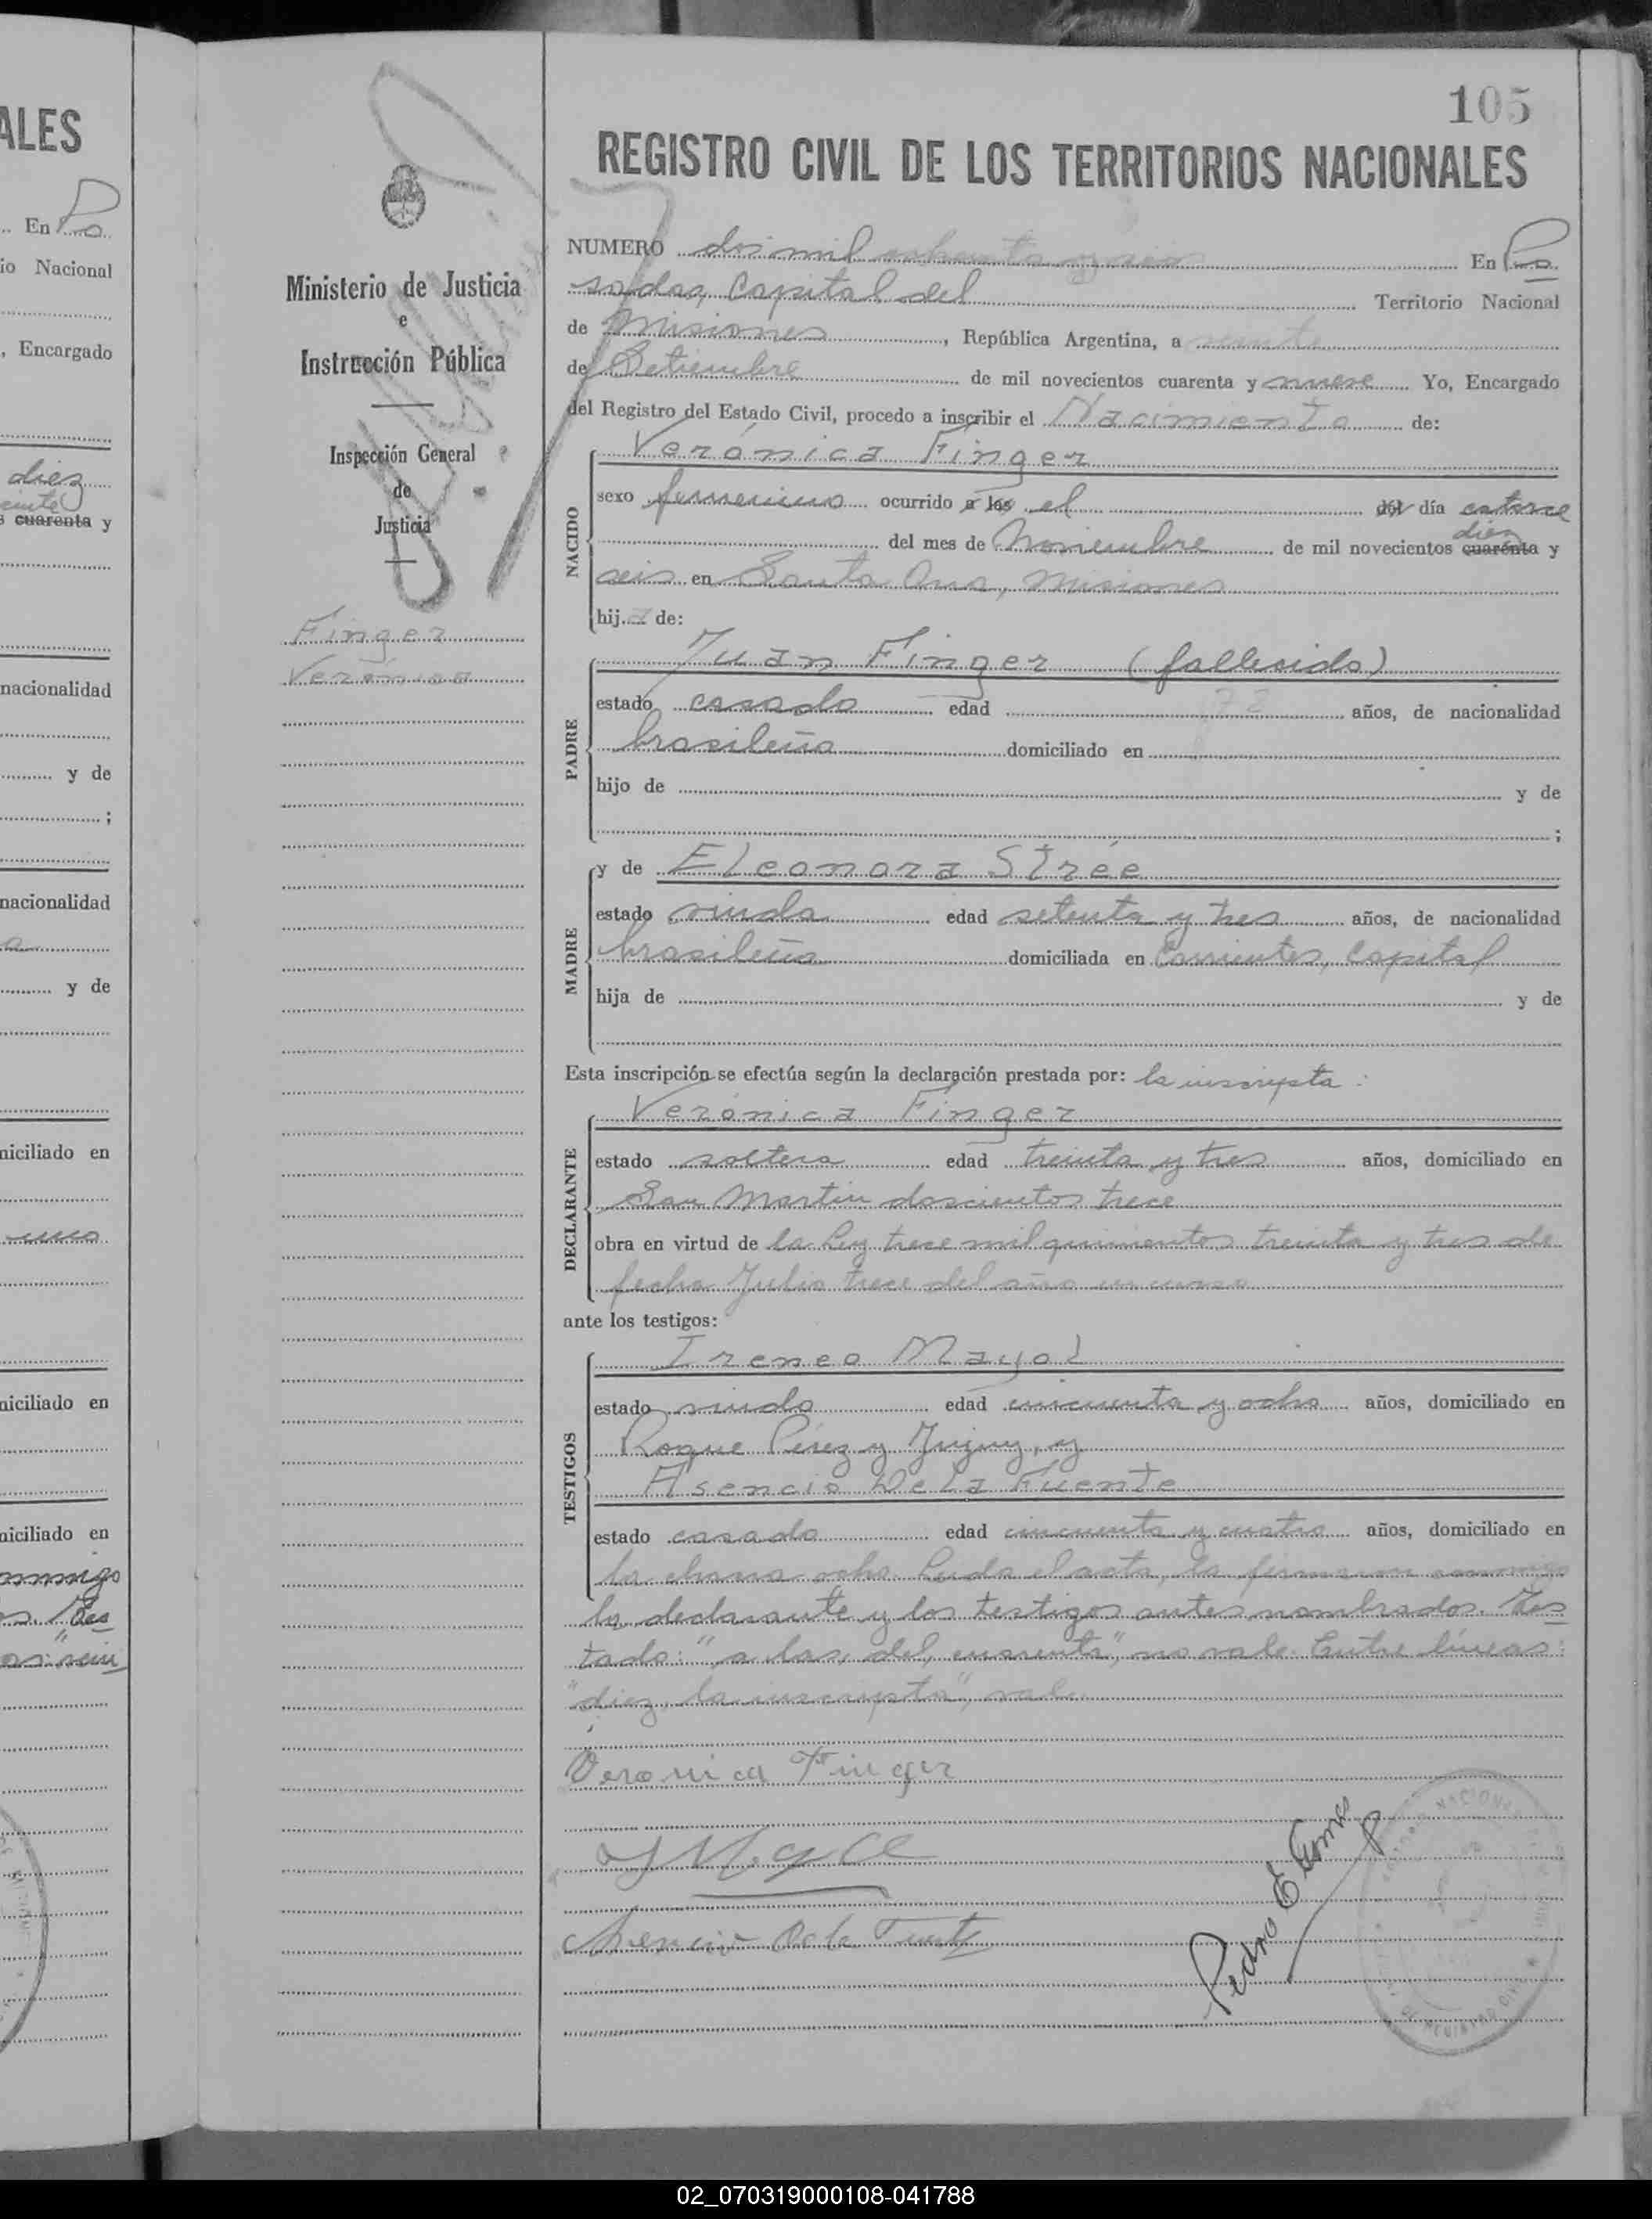 105
REGISTRO CIVIL DE LOS TERRITORIOS NACIONALES
ALES
En Po
io Nacional
, Encargado
diez
s cuarenta y
nacionalidad
y de
;
nacionalidad
y de
niciliado en
niciliado en
niciliado en
Ministerio de Justicia
e
Instrucción Pública
Inspección General
de
Justicia
Finger
Verónica
NUMERO dos mil ochenta y seis En Po
sadas, Capital del Territorio Nacional
de Misiones, República Argentina, a veinte
de Setiembre de mil novecientos cuarenta y nueve Yo, Encargado
del Registro del Estado Civil, procedo a inscribir el Nacimiento de:
Verónica Finger
NACIDO
sexo femenino ocurrido a las el del día catorce
diez
del mes de Noviembre de mil novecientos cuarenta y
seis en Santa Ana, Misiones
hija de:
PADRE
Juan Finger (fallecido)
estado casado edad años, de nacionalidad
brasileña domiciliado en
hijo de y de
;
MADRE
y de Eleonora Strée
estado viuda edad setenta y tres años, de nacionalidad
brasileña domiciliada en Corrientes, Capital
hija de y de
Esta inscripción se efectúa según la declaración prestada por: la inscripta:
DECLARANTE
Verónica Finger
estado soltera edad treinta y tres años, domiciliado en
San Martin doscientos trece
obra en virtud de la Ley trece mil quinientos treinta y tres de
fecha Julio trece del año en curso
ante los testigos:
TESTIGOS
Ireneo Mayol
estado viudo edad cincuenta y ocho años, domiciliado en
Roque Pérez y Jujuy, y
Asencio De la Fuente
estado casado edad cincuenta y cuatro años, domiciliado en
la chacra ocho Leida el acta, la firmaron conmigo
la declarante y los testigos antes nombrados. Tes
tado: "a las, del, cuarenta", no vale. Entre líneas:
"diez, la inscripta", vale.
Veronica Finger
Asencio De la Fuente
Pedro E Gomes
02_070319000108-041788